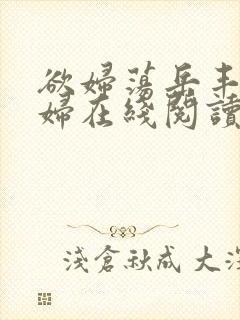 欲婦蕩岳丰
婦在綫閱讀
淺倉秋成 大深